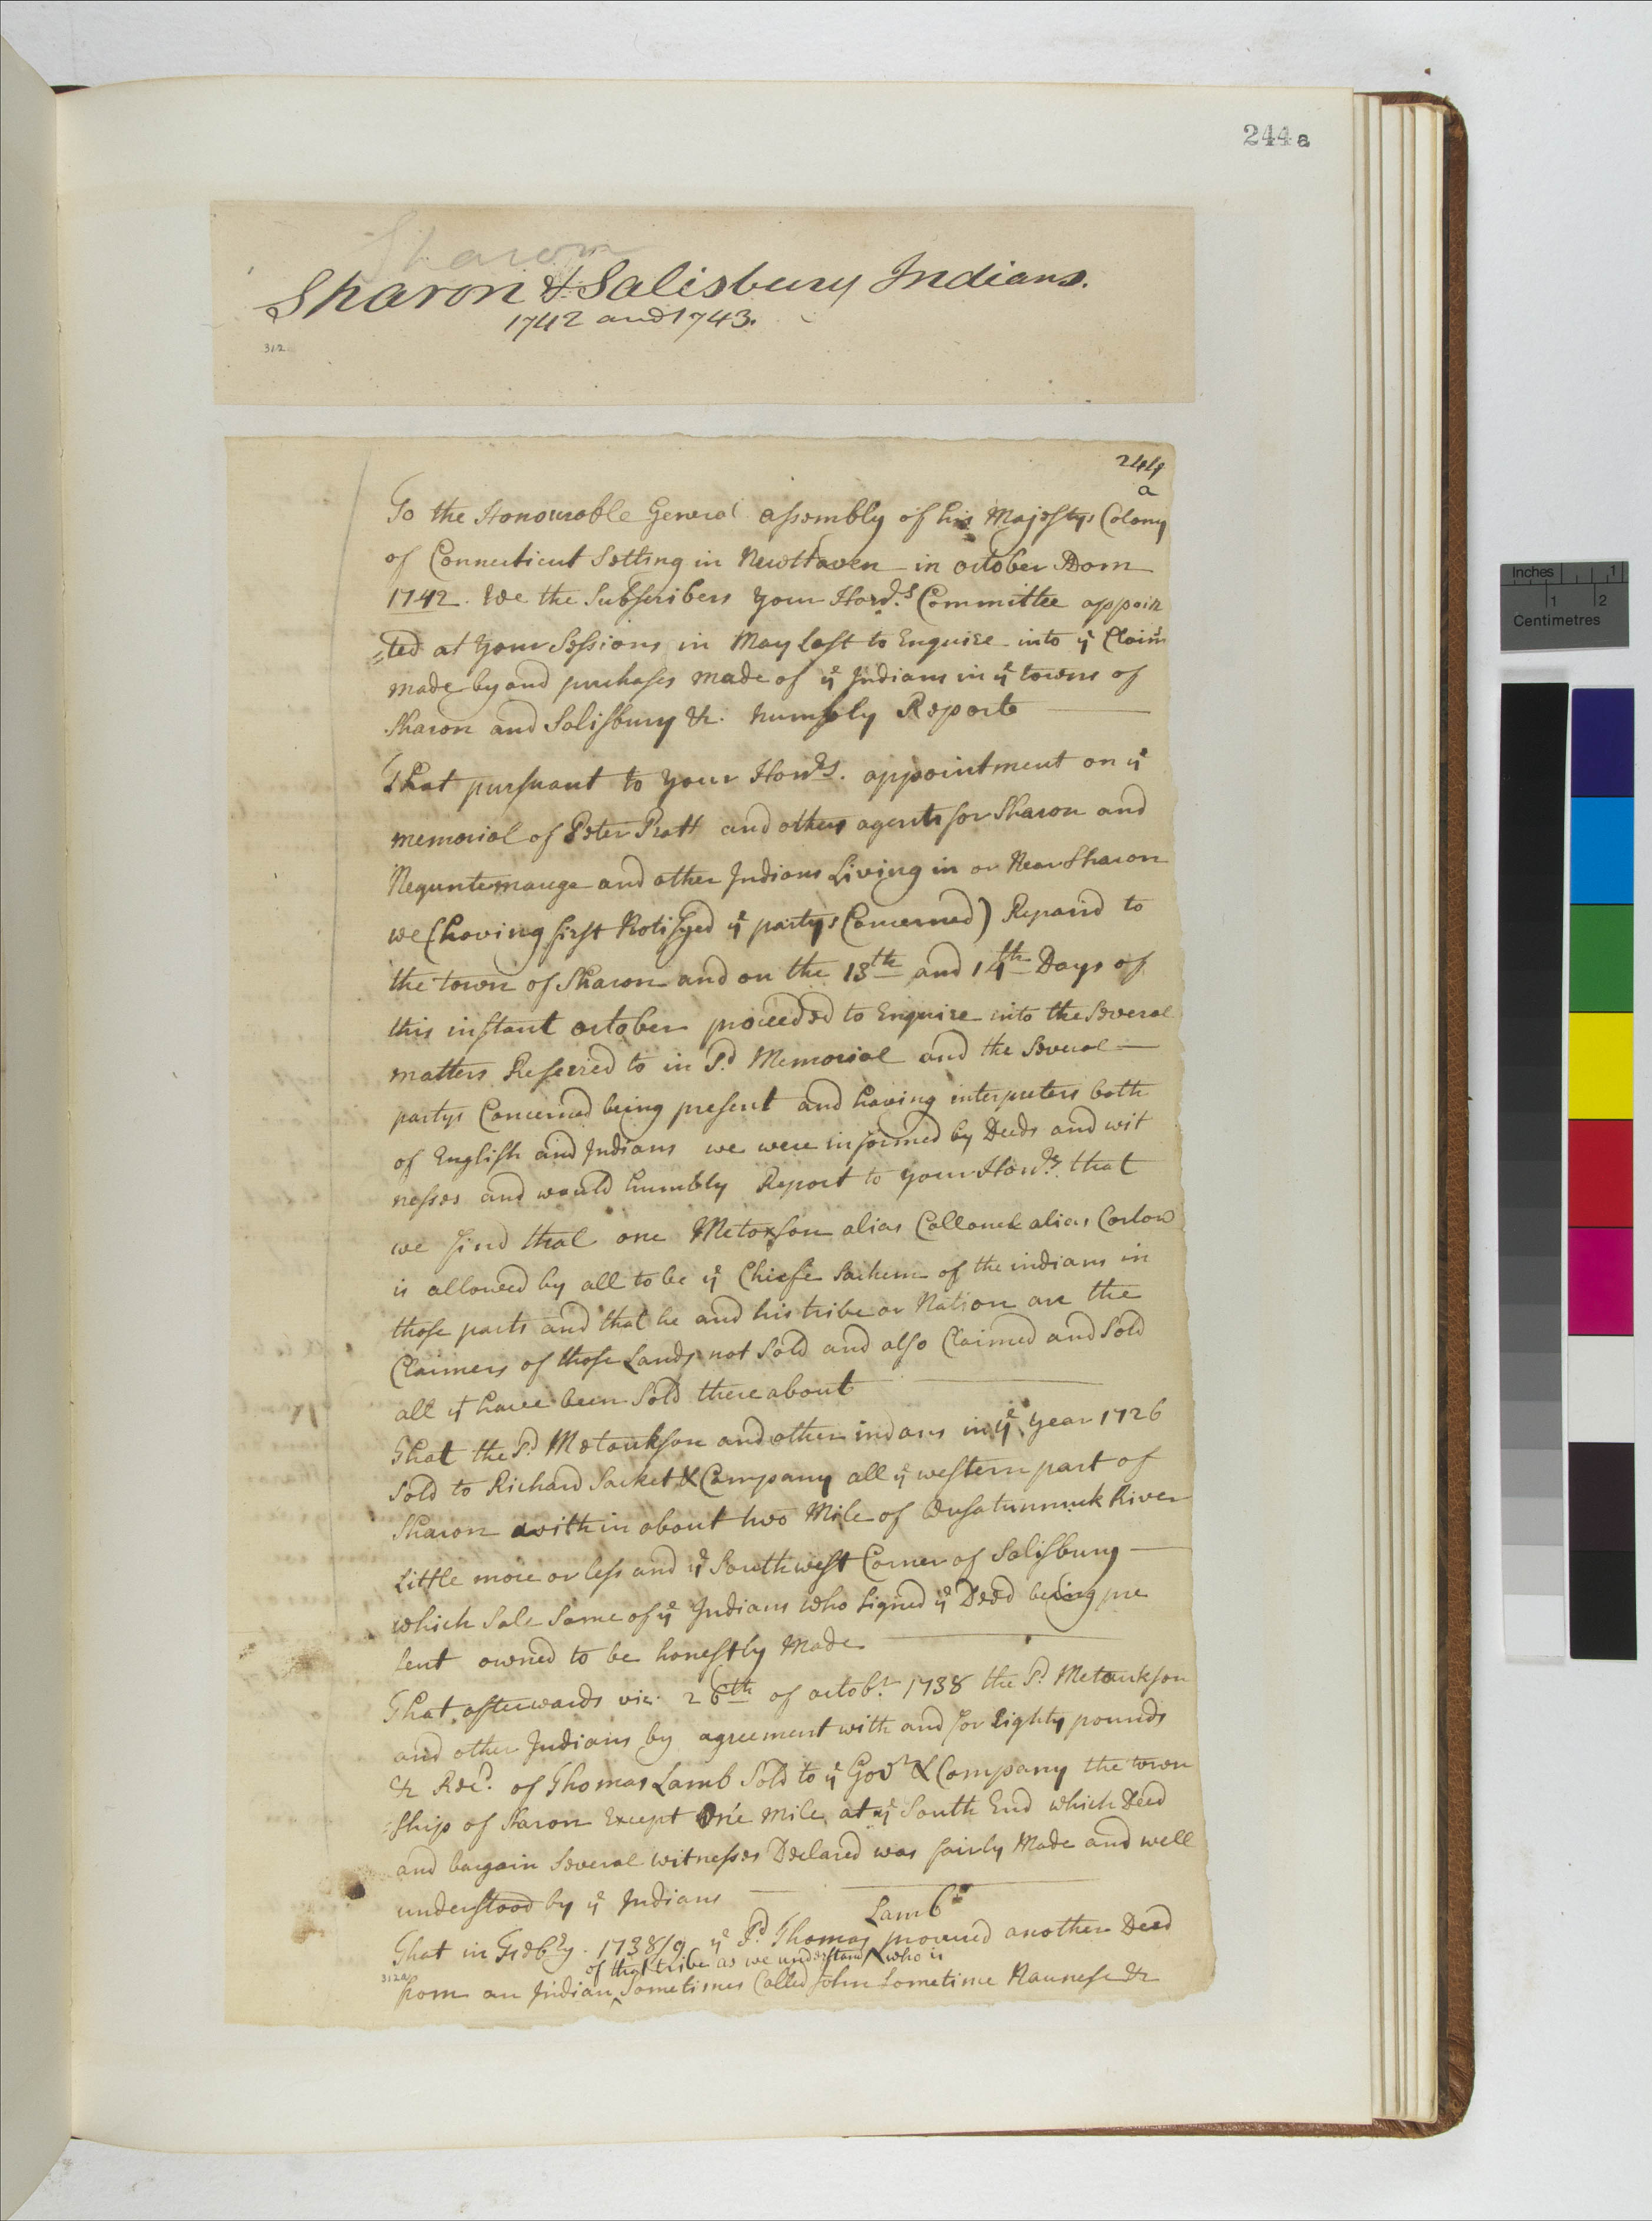 244a
Sharon
Sharon & Salisbury Indians.
1742 and 1743.
312
244
a
To the Honourable General assembly of his Majestys Colony
of Connecticut Setting in NewHaven in october ADom
1742. We the Subscribers your Hon.rs Committee appoin
=ted at your Sessions in May Last to Enquire into ye Claims
made by and purchases made of ye Indians in ye towns of
Sharon and Salisbury &c. humbly Reporte
That pursuant to your Honrs. appointment on ye
memorial of Peter Pratt and others agents for Sharon and
Nequntemauge and other Indians Living in or Near Sharon
we (having first Notifyed ye partys Concerned) Repaird to
the town of Sharon and on the 13th and 14th Days of
this instant october proceeded to Enquire into the Several
matters Referred to in sd. Memorial and the Several
partys Concerned being present and having interpreters both
of English and Indians we were informed by Deeds and wit
nesses and would humbly Report to your Honrs. that
we find that one Metoxson alias Collonek alias Corlow
is allowed by all to be ye Chiefe Sachem of the indians in
those parts and that he and his tribe or Nation are the
Claimers of those Lands not Sold and also Claimed and Sold
all yt have been Sold there about
That the sd. Metoukson and other indans in ye year 1726
Sold to Richard Sacket & Company all ye western part of
Sharon within about two Mile of Ousatunnuck River
Little more or less and ye Southwest Corner of Salisbury
which Sale Some of ye Indians who Signed ye Deed being pre
sent owned to be honestly Made
That afterwards viz. 26th of octobr. 1738 the sd. Metoukson
and other Indians by agreement with and for Eighty pounds
&c Recd. of Thomas Lamb Sold to ye Govr & Company the town
=ship of Sharon Except One mile at ye South End which Deed
and bargain Several witnesses Declared was fairly Made and well
understood by ye Indians
Lamb
That in Febry. 1738/9 ye sd Thomas procured another Deed
of that tribe as we understand who is
312a
from an Indian ‸ Sometimes Called John Sometime Naunese &c